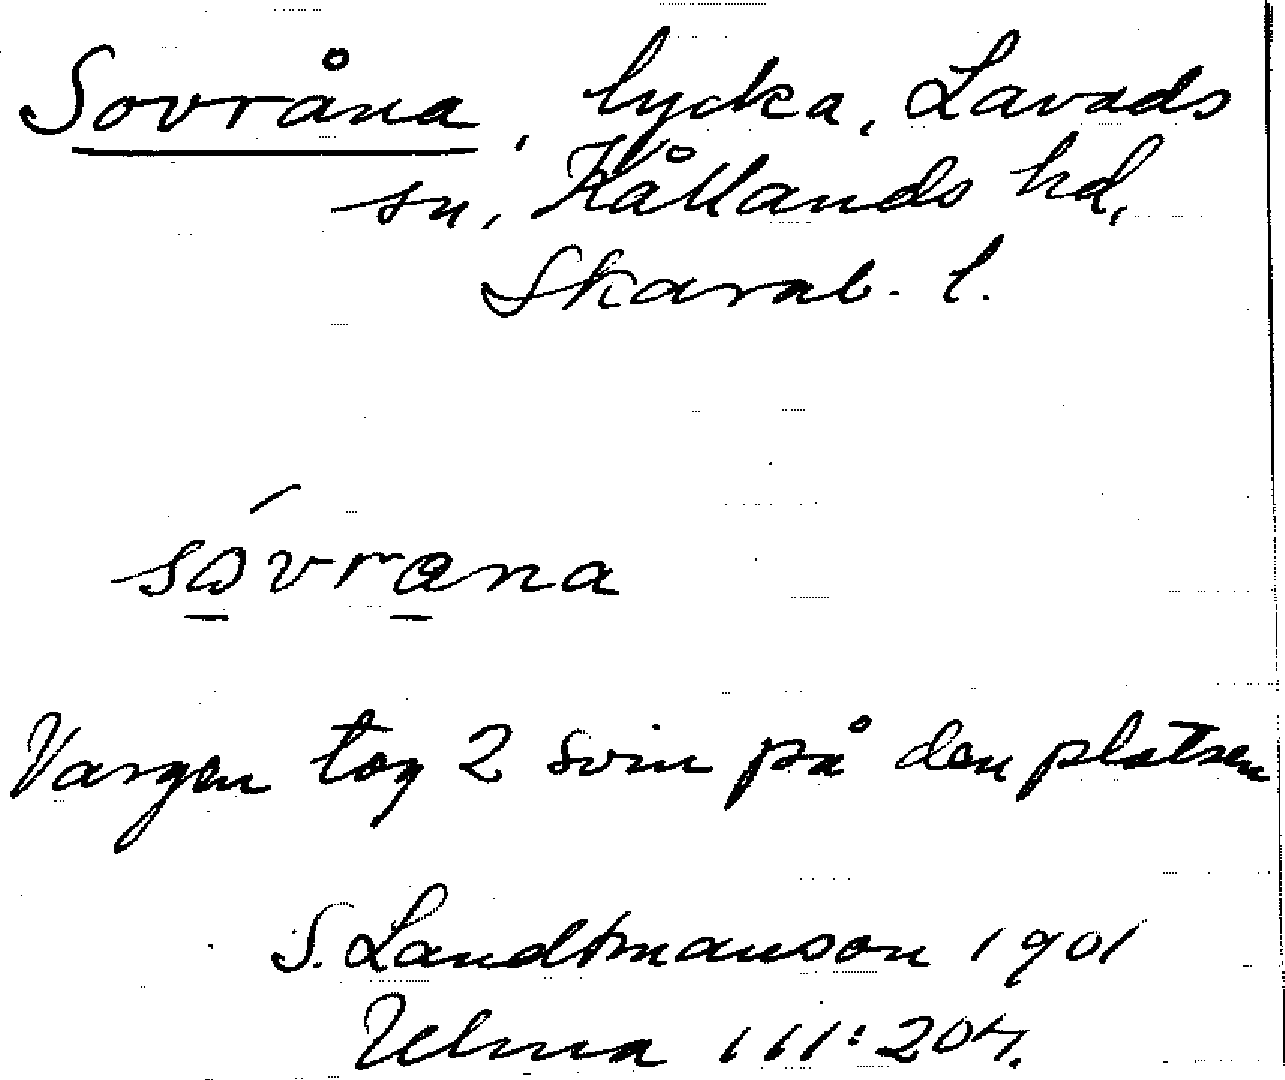 Sovråna, lycka, Lavads
sn, Kållands hd,
Skarab. l.
sóvrana
Vargen tog 2 svin på den platsen
S. Landtmanson 1901
Ulma 111:204.